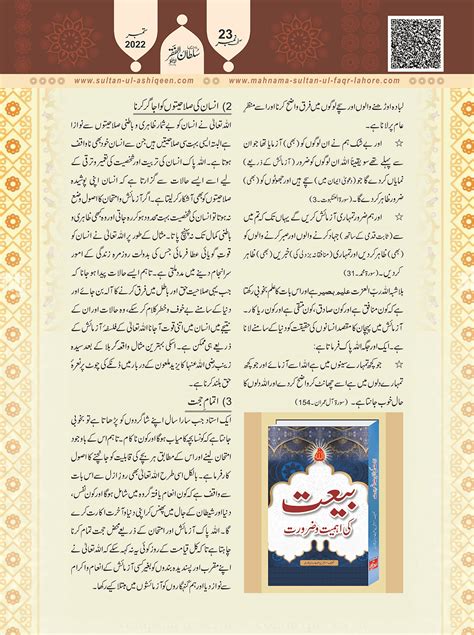 ستمبر
2022
سلطان الفقر
23
www.sultan-ul-ashiqeen.com
www.mahnama-sultan-ul-faqr-lahore.com
لبادہ اوڑھنے والوں اور سچے لوگوں میں فرق واضح کرنا اور اسے منظر
عام پر لانا ہے۔
☆ اور بے شک ہم نے ان لوگوں کو (بھی) آزمایا تھا جو ان
سے پہلے تھے سو یقیناً اللہ ان لوگوں کو ضرور (آزمائش کے ذریعے)
نمایاں کر دے گا جو (دعویٰ ایمان میں) سچے ہیں اور جھوٹوں کو (بھی)
ظاہر کر دے گا۔ (سورۃ العنکبوت۔3)
☆ اور ہم ضرور تمہاری آزمائش کریں گے یہاں تک کہ تم میں
سے (ثابت قدمی کے ساتھ) جہاد کرنے والوں اور صبر کرنے والوں کو
(بھی) ظاہر کر دیں اور تمہاری (منافقانہ بزدلی کی) خبریں (بھی) ظاہر
کر دیں۔ (سورۃ محمد۔31)
بلاشبہ اللہ ربّ العزت علیم بصیر ہے اور اس بات کا علم بخوبی رکھتا
ہے کہ کون منافق ہے اور کون صادق، کون متقی ہے اور کون ریاکار۔
آزمائش میں پہچان کا مقصد انسانوں کی حقیقت کو دنیا کے سامنے لانا
ہے۔ ایک اور جگہ اللہ پاک فرماتا ہے:
☆ جو کچھ تمہارے سینوں میں ہے اسے آزمائے اور جو کچھ
تمہارے دلوں میں ہے اسے چھانٹ کر واضح کر دے اور اللہ دلوں کا
حال خوب جانتا ہے۔ (سورۃ آل عمران۔154)
بیعت
کی اہمیت و ضرورت
2) انسان کی صلاحیتوں کو اجاگر کرنا
اللہ تعالیٰ نے انسان کو بے شمار ظاہری و باطنی صلاحیتوں سے نوازا
ہے البتہ ایسی بہت سی صلاحیتیں ہیں جن سے انسان خود بھی ناواقف
ہوتا ہے۔ اللہ پاک انسان کی تربیت اور شخصیت کی تعمیر و ترقی کے
لیے اسے ایسے حالات سے گزارتا ہے کہ انسان اپنی پوشیدہ
صلاحیتوں کو پہچان سکے۔ اگر دنیا میں آزمائش و امتحان کا اصول وضع
نہ کیا جاتا تو انسان کی شخصیت بہت محدود ہو کر رہ جاتی اور وہ کبھی ظاہری و
باطنی کمال تک نہ پہنچ پاتا۔ مثال کے طور پر اللہ تعالیٰ نے انسان کو
قوتِ گویائی عطا فرمائی جس کی بدولت روزمرہ زندگی کے امور
سرانجام دینے میں مدد ملتی ہے۔ تاہم ایسے حالات پیدا ہو جانا کہ
جب یہی صلاحیت حق اور باطل میں فرق کرنے کا آلہ بن جائے اور
دنیا کے سامنے بے خوف و خطر اظہارِ حق کا ذریعہ بن جائے اور
نتیجے میں انسان میں اتنی قوت آ جانا اللہ تعالیٰ کے فلسفۂ آزمائش کے
ذریعے ہی ممکن ہے۔ اسکی بہترین مثال واقعہ کربلا کے بعد سیدہ
زینب رضی اللہ عنہا کا یزید ملعون کے دربار میں ڈنکے کی چوٹ پر نعرۂ
حق بلند کرنا ہے۔
3) اتمامِ حجت
ایک استاد جب سارا سال اپنے شاگردوں کو پڑھاتا ہے تو بخوبی
جانتا ہے کہ کونسا بچہ کامیاب ہو گا اور کون ناکام۔ تاہم اس کے باوجود
امتحان لینے اور اس کے مطابق ہر بچے کی قابلیت کو جانچنے کا اصول
کارفرما ہے۔ بالکل اسی طرح اللہ تعالیٰ بھی روزِ ازل سے اس بات
سے واقف ہے کہ کون انعام یافتہ گروہ میں شامل ہو گا اور کون نفس،
دنیا اور شیطان کے جال میں پھنس کر اپنی دنیا و آخرت اکارت کرے
گا۔ اللہ پاک آزمائش اور امتحان کے ذریعے محض حجت تمام کرنا
چاہتا ہے تاکہ کل قیامت کے روز کوئی یہ نہ کہہ سکے کہ اللہ تعالیٰ نے
اپنے مقرب اور پسندیدہ بندوں کو بغیر کسی آزمائش کے انعام و اکرام
سے نوازا اور ہم گنہگاروں کو آزمائشوں میں مبتلا کیے رکھا۔